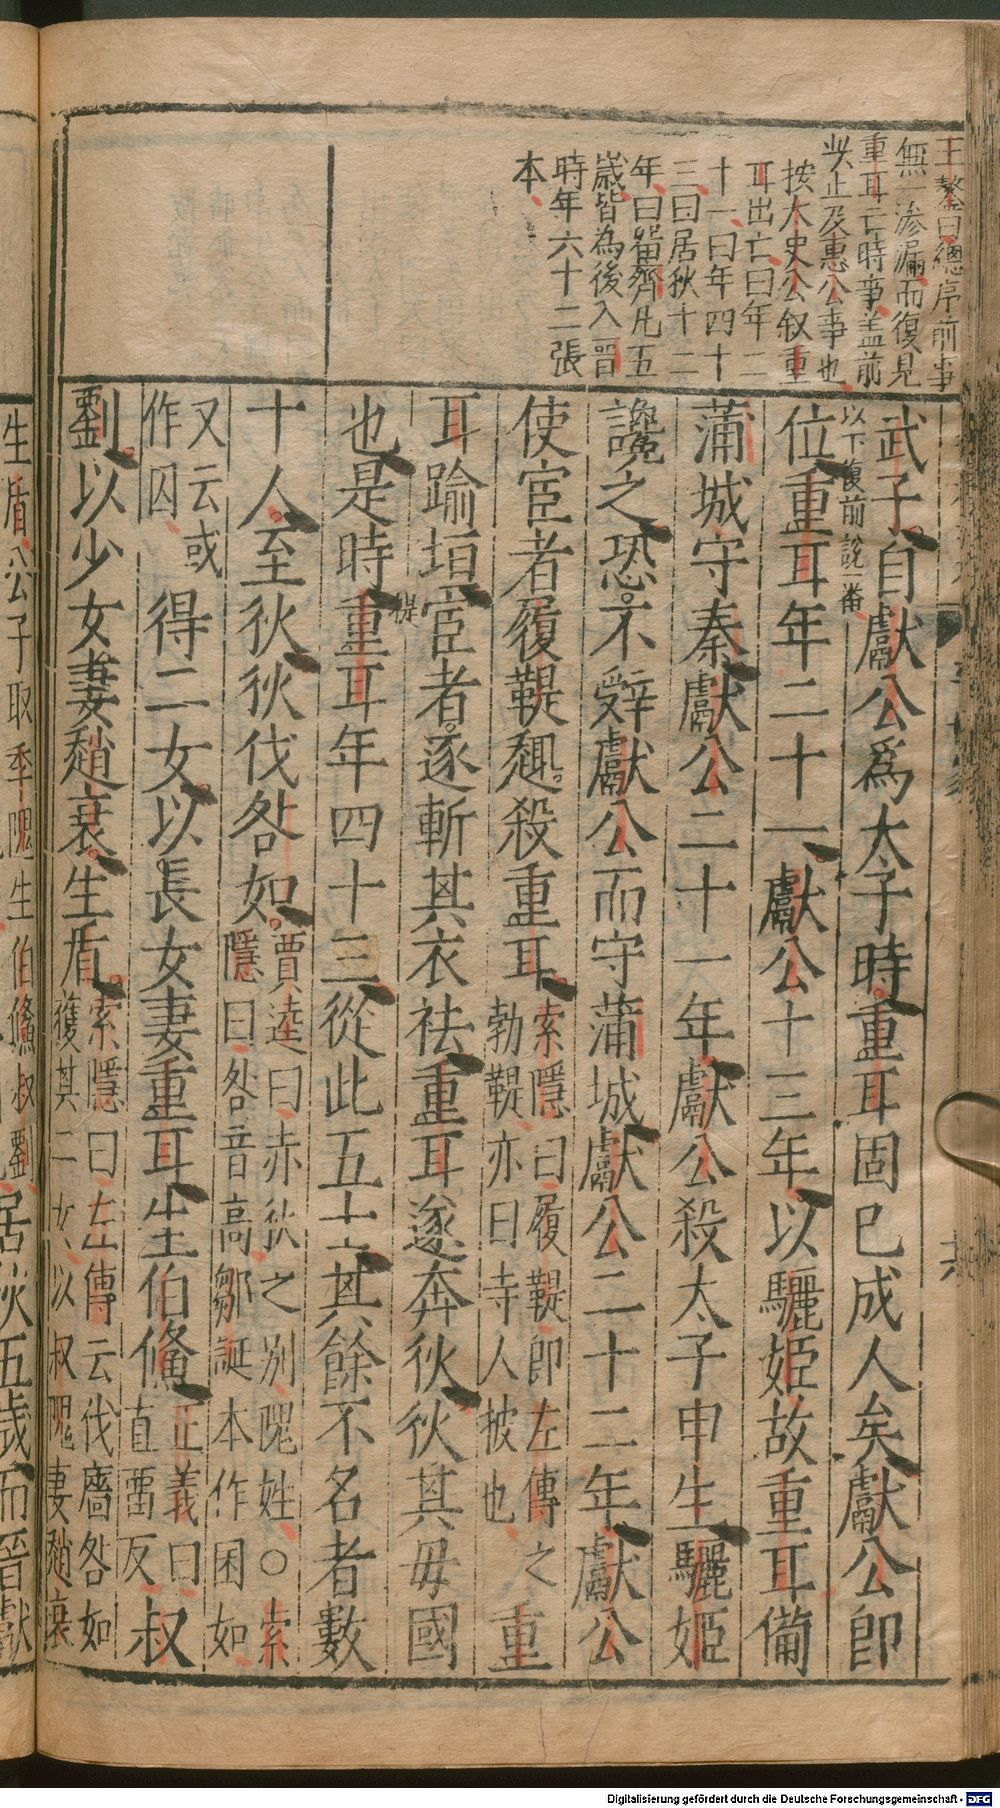 王鏊曰總序前事
無一滲漏而復見
重耳亡時事盖前
此止及惠公事也
按太史公叙重
耳出亡曰年二
十一曰年四十
三曰居狄十二
年曰留齊凡五
歲皆為後入晉
時年六十二張
本
武子自獻公爲太子時重耳固已成人矣獻公即
以下復前說一番
位重耳年二十一獻公十三年以驪姬故重耳備
蒲城守秦獻公二十一年獻公殺太子申生驪姬
讒之恐不辭獻公而守蒲城獻公二十二年獻公
使宦者履鞮趣殺重耳
索隱曰履鞮即左傳之
勃鞮亦曰寺人披也
重
耳踰垣宦者逐斬其衣袪重耳遂奔狄狄其母國
也是時重耳年四十三從此五士其餘不名者數
十人至狄狄伐咎如
賈逵曰赤狄之别隗姓○索
隱曰咎音高鄒誕本作囷如
又云或
作囚
得二女以長女妻重耳生伯鯈
正義曰
直畱反
叔
劉以少女妻趙衰生盾
索隱曰左傳云伐廧咎如
獲其二女以叔隗妻趙衰
生盾公子取季隗生伯鯈叔劉
居狄五歲而晉獻
Digitalisierung gefördert durch die Deutsche Forschungsgemeinschaft - DFG